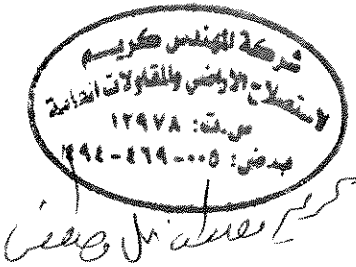 شركة المهندس كريم
لاستصلاح الاراضى والمقاولات العامة
س.ت: ١٢٩٧٨
ب.ض: ٠٠٥-٤٦٩-٤٩٤
كريم